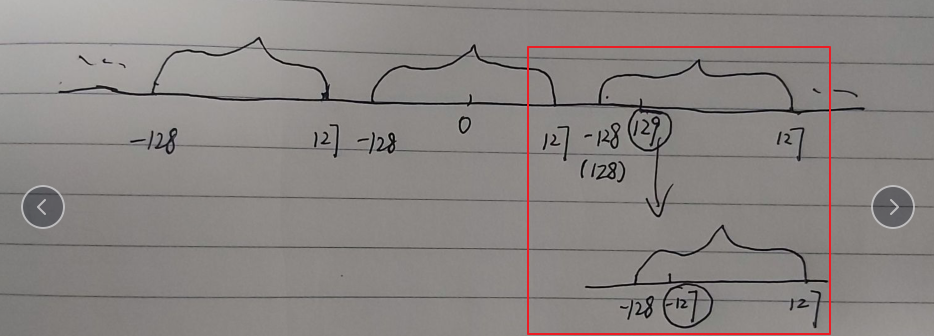 -128 127 -128 0 127 -128 129 127
(128)
-128 -127 127